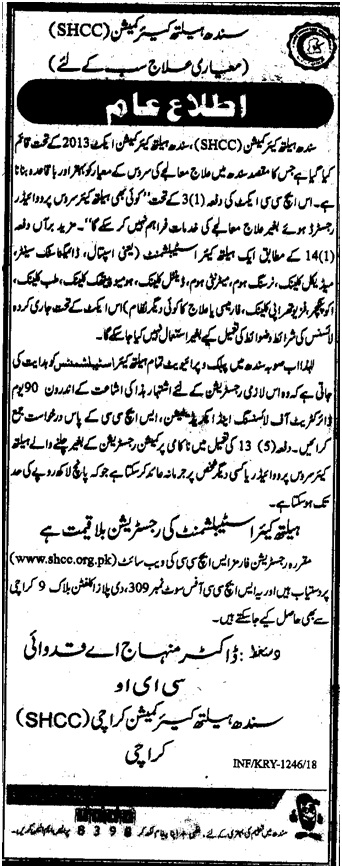 سندھ ہیلتھ کیئر کمیشن (SHCC)
(معیاری علاج سب کے لئے)
اطلاع عام
سندھ ہیلتھ کیئر کمیشن (SHCC)، سندھ ہیلتھ کیئر کمیشن ایکٹ 2013 کے تحت قائم
کیا گیا ہے جس کا مقصد سندھ میں علاج معالجے کی سروس کے معیار کو بہتر اور باقاعدہ بنانا
ہے۔ ایس ایچ سی سی ایکٹ کی دفعہ (1)3 کے تحت "کوئی بھی ہیلتھ کیئر سروس پرووائیڈر
رجسٹرڈ ہوئے بغیر علاج معالجے کی خدمات فراہم نہیں کر سکے گا"۔ مزید برآں دفعہ
(1)14 کے مطابق ایک ہیلتھ کیئر اسٹیبلشمنٹ (یعنی اسپتال، ڈائیگناسٹک سینٹر،
میڈیکل کلینک، نرسنگ ہوم، میٹرنٹی ہوم، ڈینٹل کلینک، ہومیو پیتھک کلینک، طب کلینک،
اکوپنکچر، فزیو تھراپی کلینک، فارمیسی یا علاج کا کوئی دیگر نظام) اس ایکٹ کے تحت جاری کردہ
لائسنس کی شرائط و ضوابط کی تعمیل کے بغیر استعمال نہیں کیا جا سکے گا۔
لہٰذا اب صوبہ سندھ میں پبلک و پرائیویٹ تمام ہیلتھ کیئر اسٹیبلشمنٹس کو ہدایت کی
جاتی ہے کہ وہ اس لازمی رجسٹریشن کے لئے اشتہار ہذا کی اشاعت کے اندرون 90 یوم
ڈائرکٹریٹ آف لائسنسنگ اینڈ ایکریڈیٹیشن، ایس ایچ سی سی کے پاس درخواست جمع
کرائیں۔ دفعہ (5) 13 کی تعمیل میں ناکامی پر کمیشن رجسٹریشن کے بغیر چلنے والے ہیلتھ
کیئر سروس پرووائیڈر یا کسی دیگر شخص پر جرمانہ عائد کر سکتا ہے جو کہ پانچ لاکھ روپے کی حد
تک ہو سکتا ہے۔
ہیلتھ کیئر اسٹیبلشمنٹ کی رجسٹریشن بلا قیمت ہے
مقررہ رجسٹریشن فارمز ایس ایچ سی سی کی ویب سائٹ (www.shcc.org.pk)
پر دستیاب ہیں اور یہ ایس ایچ سی سی آفس سوٹ نمبر 309، دی پلازا کلفٹن بلاک 9 کراچی
سے بھی حاصل کیے جا سکتے ہیں۔
دستخط: ڈاکٹر منہاج اے قدوائی
سی ای او
سندھ ہیلتھ کیئر کمیشن کراچی (SHCC)
کراچی
INF/KRY-1246/18
سندھ میں تعلیم کی بہتری کے لئے۔ اپنا پیغام لکھ کر 8398 پر ایس ایم ایس کریں۔